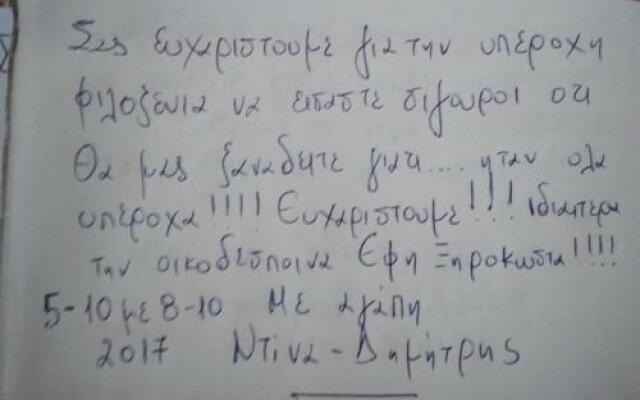 Σας ευχαριστουμε για την υπεροχη
φιλοξενια να εισαστε σιγουροι οτι
Θα μας ξαναδειτε γιατι.... ηταν ολα
υπεροχα!!!! Ευχαριστουμε!!! Ιδιαιτερα
την οικοδεσποινα Εφη Ξηροκωστα!!!!
5-10 με 8-10 Με αγάπη
2017 Ντίνα - Δημήτρης